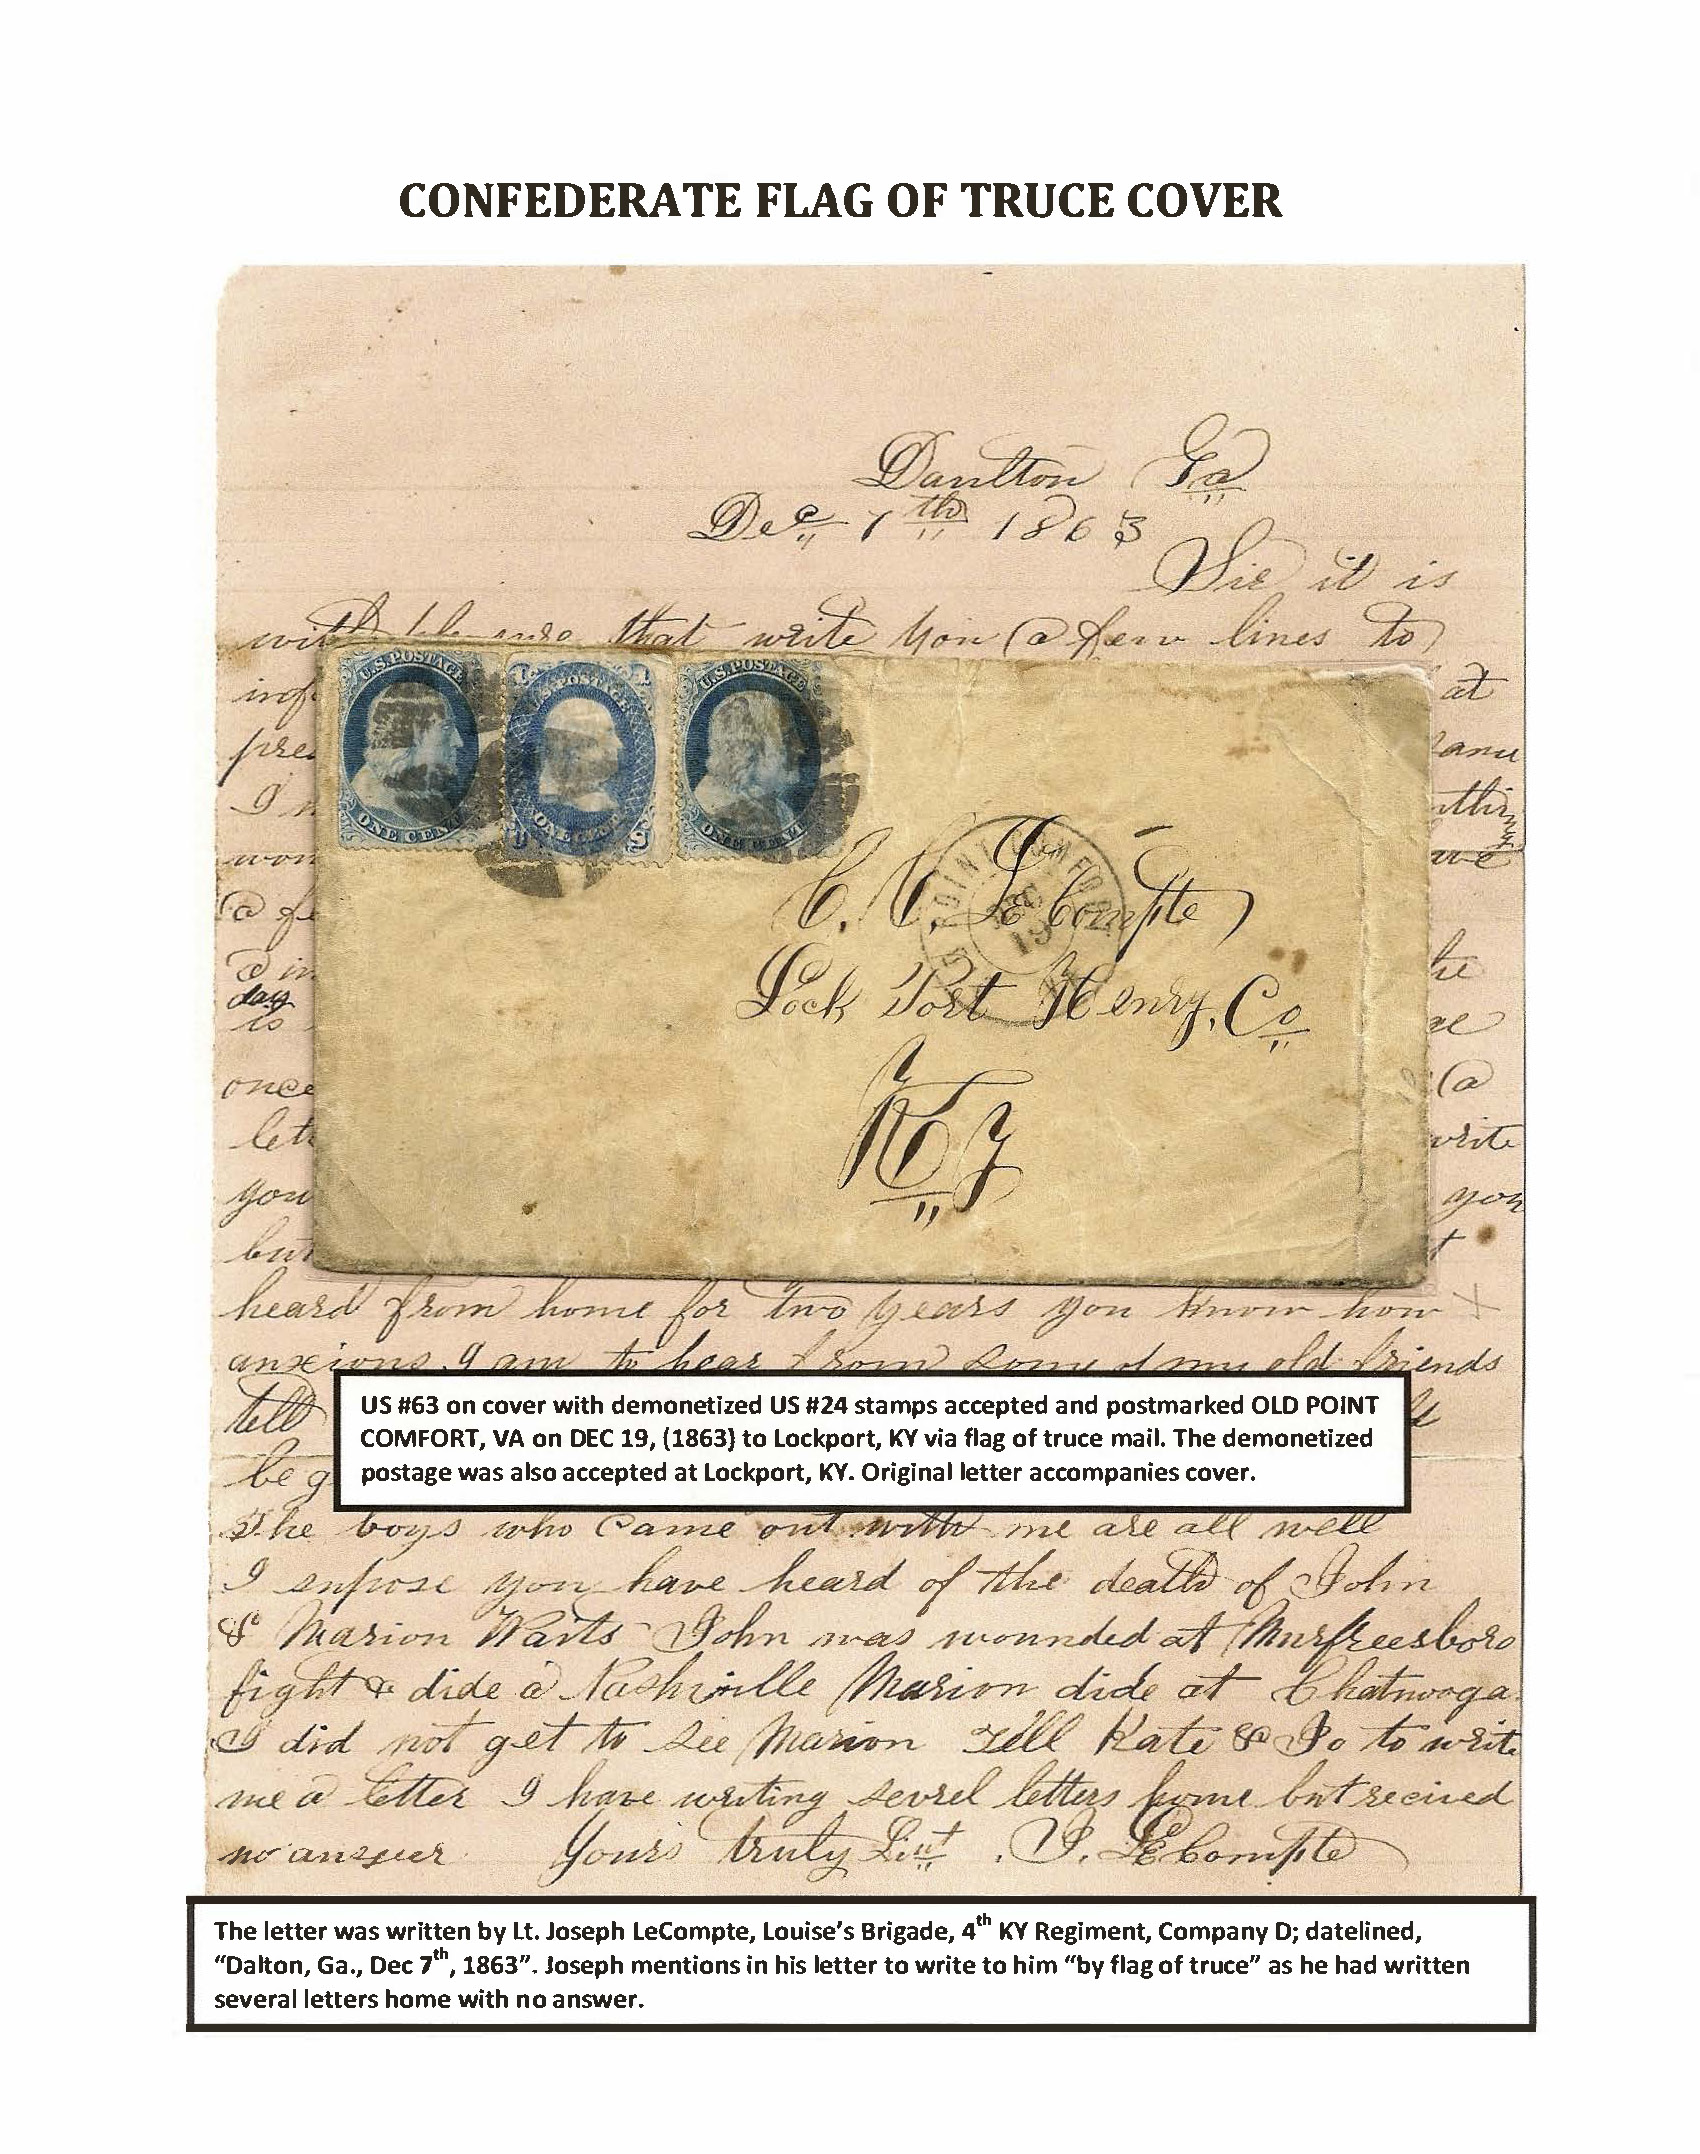 CONFEDERATE FLAG OF TRUCE COVER
Danlton Ga
Dec 7th 1863
Sir it is
with that write you a few lines to
at
I
a
day
is
once
(a
write
you
you
U.S. POSTAGE
ONE CENT
U.S. POSTAGE
U.S. POSTAGE
ONE CENT
POINT COMFORT
DEC
19
C. LeCompte
Lock Port Henry, Co
KY
heard from home for two years you know how
anxious I am to hear from some of my old friends
tell
US #63 on cover with demonetized US #24 stamps accepted and postmarked OLD POINT
COMFORT, VA on DEC 19, (1863) to Lockport, KY via flag of truce mail. The demonetized
postage was also accepted at Lockport, KY. Original letter accompanies cover.
be g
The boys who came out with me are all well
I supose you have heard of the death of John
& Marion Waits John was wounded at Murfreesboro
fight & dide a Nashville Marion dide at Chatnooga
I did not get to see Marion Tell Kate & Jo to write
me a letter I have writing sevrel letters home but recived
no answer Yours truly Liut. J. LeCompte
The letter was written by Lt. Joseph LeCompte, Louise's Brigade, 4th KY Regiment, Company D; datelined,
"Dalton, Ga., Dec 7th, 1863". Joseph mentions in his letter to write to him "by flag of truce" as he had written
several letters home with no answer.